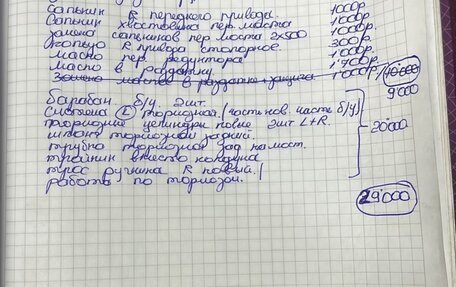 сальник R переднего привода. 1000р.
сальник хвостовика пер. моста 1000р
замена сальников пер моста 2x500 1000р.
кольцо R привода стопорное. 300р.
масло пер. редуктора 1000р.
масло в раздатку. 1'700р
Замена масла в раздатке + защита 1000р / 10'000
9'000
барабан б/у. 2шт.
система тормозная. (часть нов. часть б/у)
тормозные цилиндры новые 3шт L+R. 20'000
шланг тормозной задний.
трубка тормозная зад на мост.
тройник вместо колдуна
трос ручника R новый.
работа по тормозам.
29'000